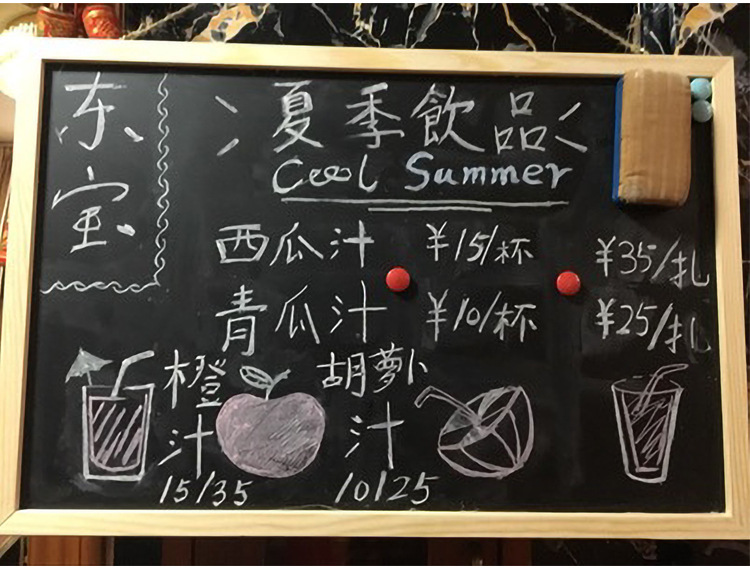 东宝
夏季飲品
Cool Summer
西瓜汁 ¥15/杯 ¥35/扎
青瓜汁 ¥10/杯 ¥25/扎
橙汁 15/35
胡萝卜汁 10/25